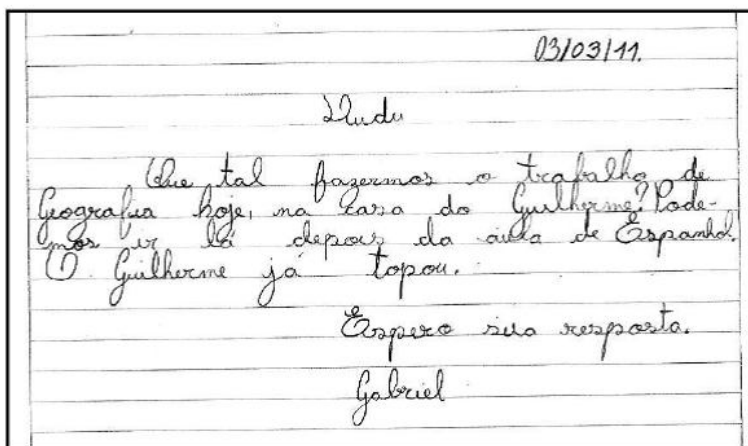 03/03/11.
Dudu
Que tal fazermos o trabalho de
Geografia hoje, na casa do Guilherme? Pode-
mos ir lá depois da aula de Espanhol.
O Guilherme já topou.
Espero sua resposta.
Gabriel